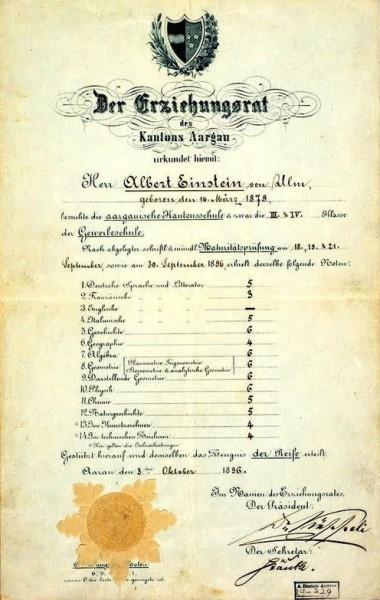 Der Erziehungsrat
des
Kantons Aargau
urkundet hiemit:
Herr Albert Einstein von Ulm,
geboren den 14. März 1879,
besuchte die aargauische Kantonsschule & zwar die III. & IV. Klasse
der Gewerbeschule.
Nach abgelegter schriftl. & mündl. Maturitätsprüfung am 18., 19. & 21.
September, sowie am 30. September 1896 erhielt derselbe folgende Noten:
1. Deutsche Sprache und Litteratur 5
2. Französische 3
3. Englische —
4. Italienische 5
5. Geschichte 6
6. Geographie 4
7. Algebra 6
8. Geometrie (Planimetrie, Trigonometrie 6
Stereometrie & analytische Geometrie)
9. Darstellende Geometrie 6
10. Physik 6
11. Chemie 5
12. Naturgeschichte 5
*13. Im Kunstzeichnen 4
*14. Im technischen Zeichnen 4
* Hier gelten die Jahresleistungen.
Gestützt hierauf wird demselben das Zeugnis der Reife erteilt.
Aarau den 3ten Oktober 1896.
Im Namen des Erziehungsrates,
Der Präsident:
Der Sekretär:
A. Einstein Archive
29